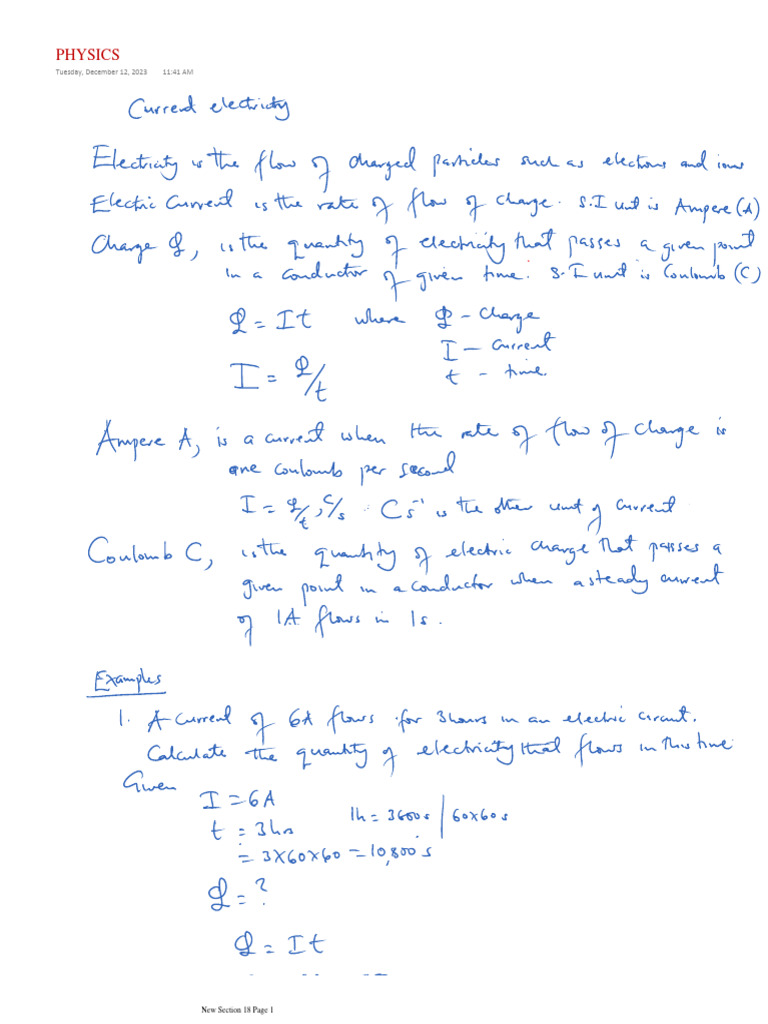 PHYSICS
Tuesday, December 12, 2023 11:41 AM
Current electricity
Electricity is the flow of charged particles such as electrons and ions
Electric Current is the rate of flow of charge. S.I unit is Ampere (A)
Charge Q, is the quantity of electricity that passes a given point
in a conductor of given time. S.I unit is Coulomb (C)
Q = It where Q - charge
I - current
I = Q/t t - time.
Ampere A, is a current when the rate of flow of charge is
one coulomb per second
I = Q/t, C/s ∴ Cs⁻¹ is the other unit of current
Coulomb C, is the quantity of electric charge that passes a
given point in a conductor when a steady current
of 1A flows in 1s.
Examples
1. A current of 6A flows for 3hours in an electric circuit.
Calculate the quantity of electricity that flows in this time
Given
I = 6A
t = 3hrs 1h = 3600s | 60x60s
= 3x60x60 = 10,800s
Q = ?
Q = It
New Section 18 Page 1